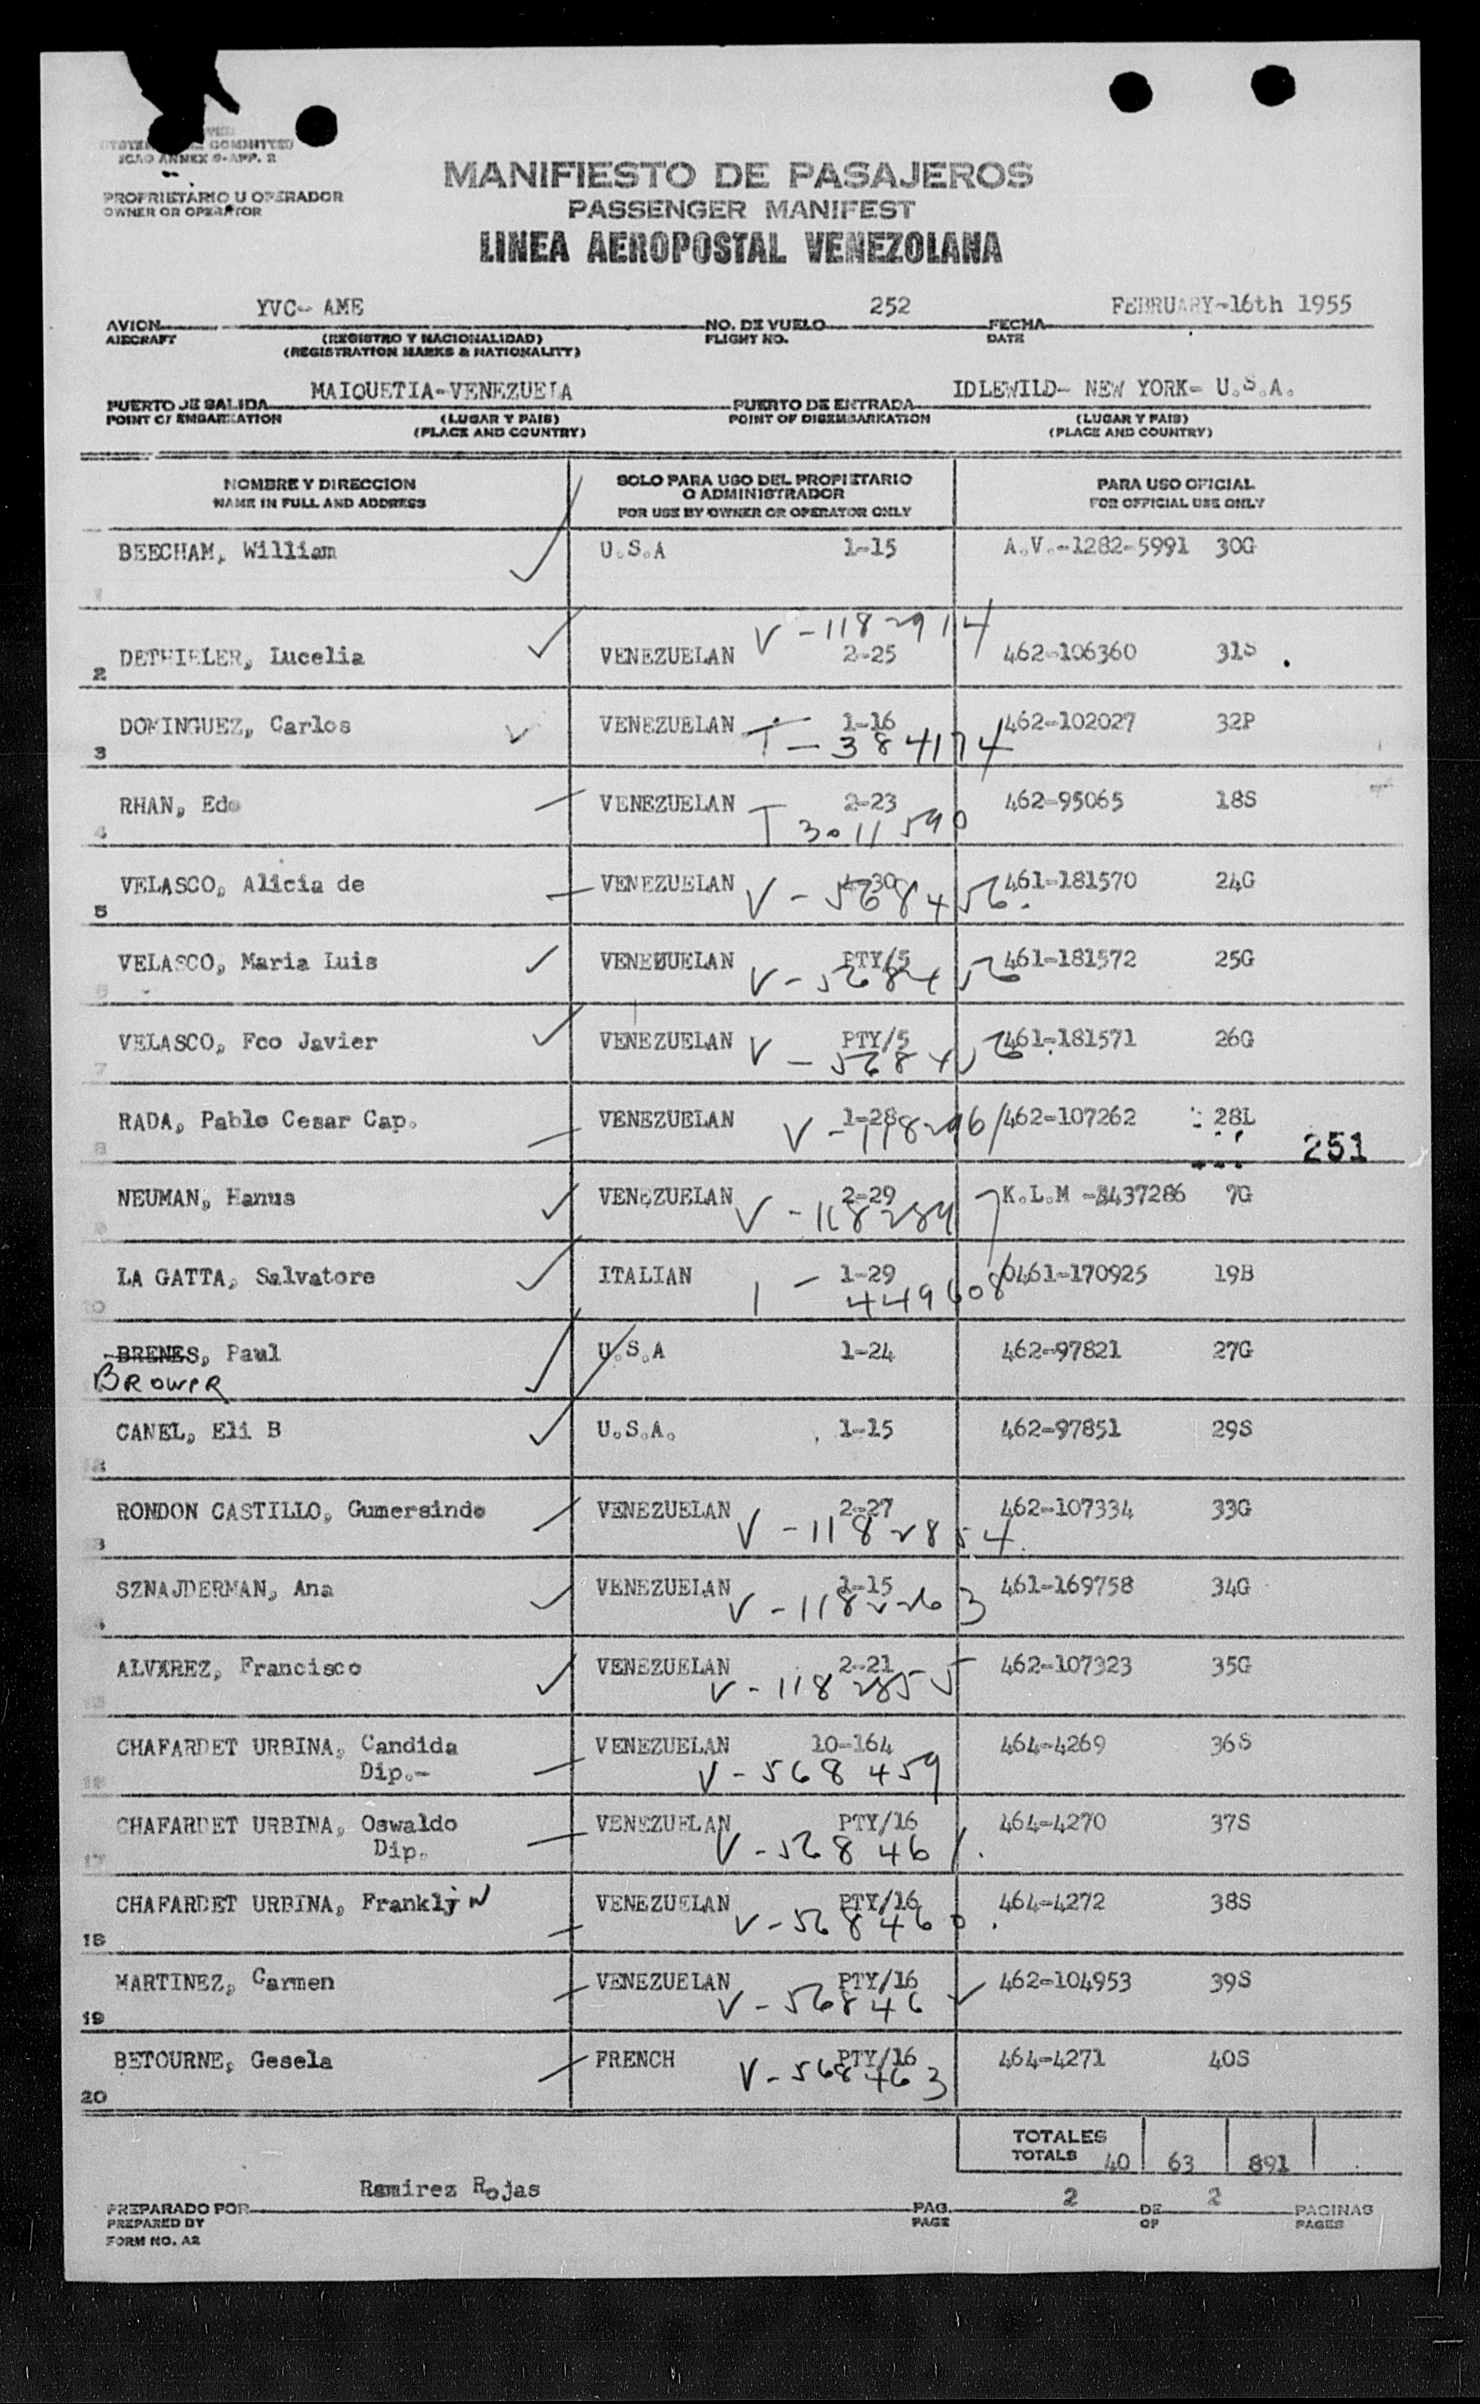 COMMITTED
ICAO ANNEX 9-APP. 2
PROPRIETARIO U OPERADOR
OWNER OR OPERATOR
MANIFIESTO DE PASAJEROS
PASSENGER MANIFEST
LINEA AEROPOSTAL VENEZOLANA
YVC- AME 252 FEBRUARY-16th 1955
AVION NO. DE VUELO FECHA
AIRCRAFT (REGISTRO Y NACIONALIDAD) FLIGHT NO. DATE
(REGISTRATION MARKS & NATIONALITY)
MAIQUETIA-VENEZUELA IDLEWILD- NEW YORK- U.S.A.
PUERTO DE SALIDA PUERTO DE ENTRADA
POINT OF EMBARKATION (LUGAR Y PAIS) POINT OF DISEMBARKATION (LUGAR Y PAIS)
(PLACE AND COUNTRY) (PLACE AND COUNTRY)
NOMBRE Y DIRECCION SOLO PARA USO DEL PROPIETARIO PARA USO OFICIAL
O ADMINISTRADOR
NAME IN FULL AND ADDRESS FOR USE BY OWNER OR OPERATOR ONLY FOR OFFICIAL USE ONLY
BEECHAM, William U.S.A 1-15 A.V.-1282-5991 30G
1
V-1182914
DETHIELER, Lucelia VENEZUELAN 2-25 462-106360 31S
2
DOMINGUEZ, Carlos VENEZUELAN 1-16 462-102027 32P
3 T-384174
RHAN, Edo VENEZUELAN 2-23 462-95065 18S
4 T 3011590
VELASCO, Alicia de VENEZUELAN 4-30 461-181570 24G
5 V-568456
VELASCO, Maria Luis VENEZUELAN PTY/5 461-181572 25G
6 V-568456
VELASCO, Fco Javier VENEZUELAN PTY/5 461-181571 26G
7 V-568456
RADA, Pablo Cesar Cap. VENEZUELAN 1-28 462-107262 28L
8 V-118296/ 251
NEUMAN, Hanus VENEZUELAN 2-29 K.L.M -2437286 7G
9 V-1182897
LA GATTA, Salvatore ITALIAN 1-29 0461-170925 19B
10 I - 449608
BRENES, Paul U.S.A 1-24 462-97821 27G
BROWER
CANEL, Eli B U.S.A. 1-15 462-97851 29S
12
RONDON CASTILLO, Gumersindo VENEZUELAN 2-27 462-107334 33G
13 V-1182854
SZNAJDERMAN, Ana VENEZUELAN 1-15 461-169758 34G
14 V-1182263
ALVAREZ, Francisco VENEZUELAN 2-21 462-107323 35G
15 V-1182855
CHAFARDET URBINA, Candida VENEZUELAN 10-164 464-4269 36S
16 Dip.- V-568459
CHAFARDET URBINA, Oswaldo VENEZUELAN PTY/16 464-4270 37S
17 Dip. V-568461.
CHAFARDET URBINA, Franklin VENEZUELAN PTY/16 464-4272 38S
18 V-568460.
MARTINEZ, Carmen VENEZUELAN PTY/16 462-104953 39S
19 V-568462
BETOURNE, Gesela FRENCH PTY/16 464-4271 40S
20 V-568463
TOTALES
TOTALS 40 63 891
Ramirez Rojas 2 2
PREPARADO POR PAG. DE PAGINAS
PREPARED BY PAGE OF PAGES
FORM NO. A2